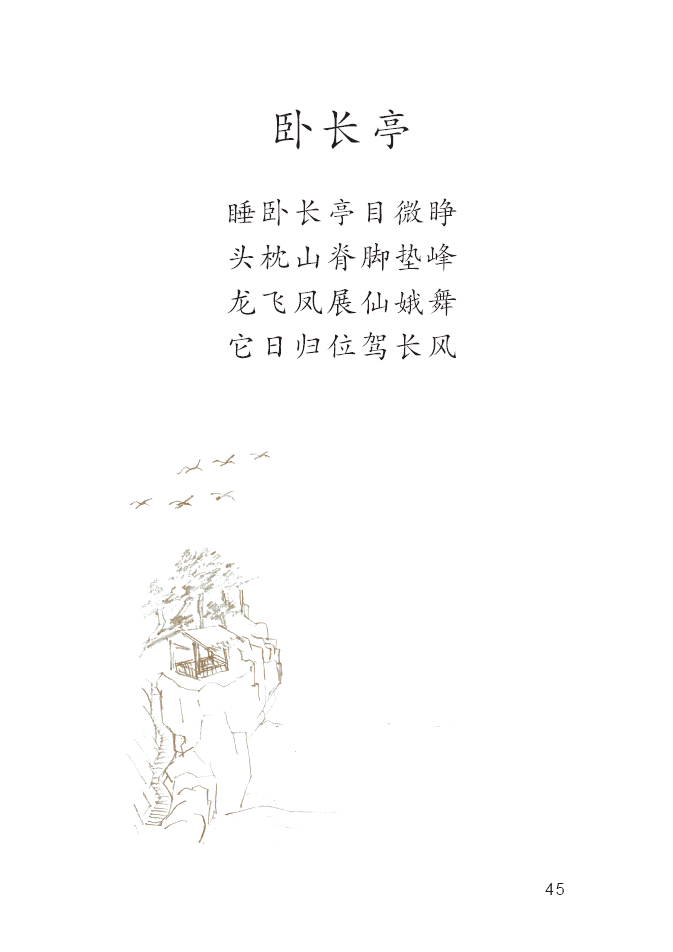 卧长亭
睡卧长亭目微睁
头枕山脊脚垫峰
龙飞凤展仙娥舞
它日归位驾长风
45